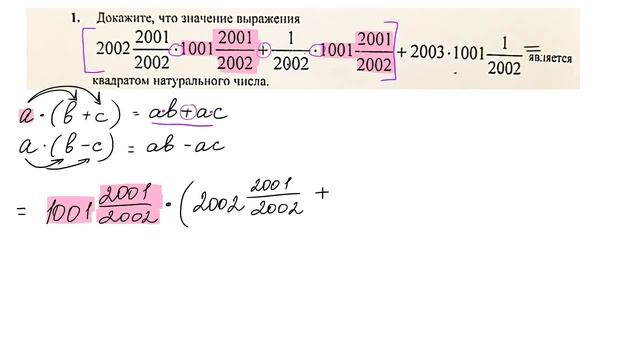 1. Докажите, что значение выражения
[2002 2001/2002 · 1001 2001/2002 + 1/2002 · 1001 2001/2002] + 2003 · 1001 1/2002 = является
квадратом натурального числа.
a · (b + c) = ab + ac
a · (b - c) = ab - ac
= 1001 2001/2002 · (2002 2001/2002 +